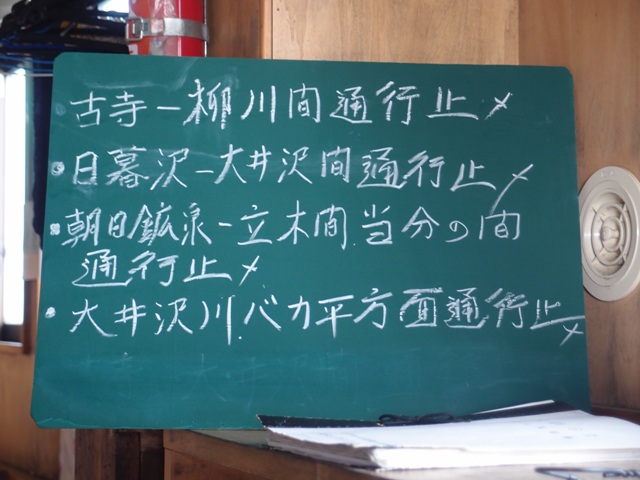 古寺－柳川間通行止メ
・日暮沢－大井沢間通行止メ
・朝日鉱泉－立木間.当分の間
通行止メ
・大井沢川.バカ平方面通行止メ